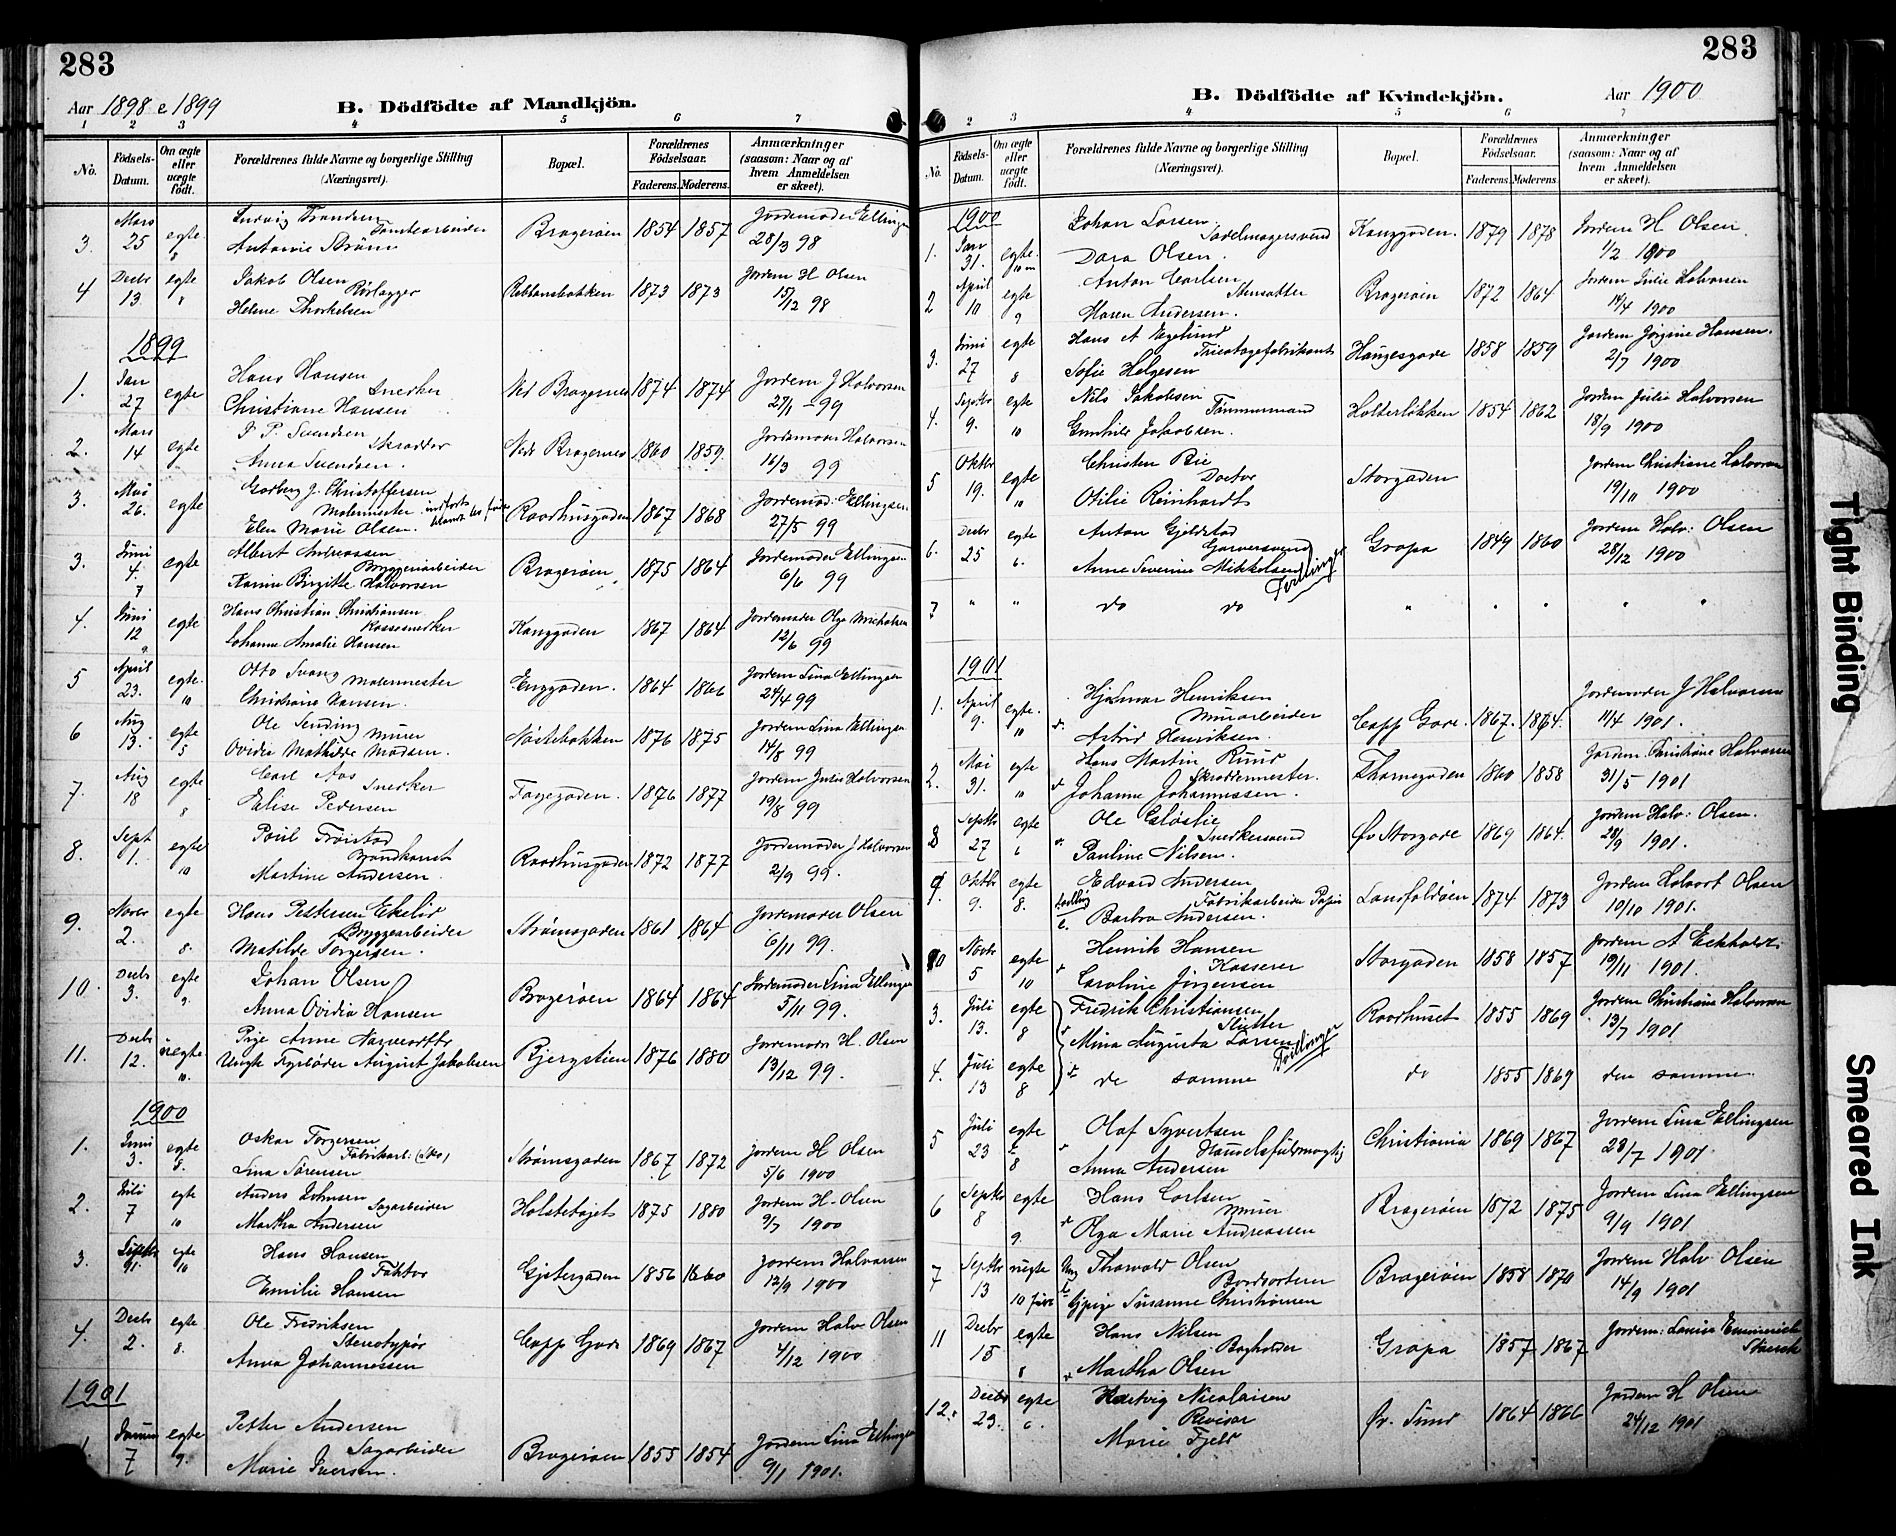 283
Aar 1898 & 1899
B. Dödfödte af Mandkjön.
1 2 3 4 5 6 7
No. Födsels-Datum. Om ægte eller uægte födt. Forældrenes fulde Navne og borgerlige Stilling (Næringsvei). Bopæl. Forældrenes Födselsaar. Faderens. Moderens. Anmærkninger (saasom: Naar og af hvem Anmeldelsen er skeet).
3. Mars 25 egte 8 Ludvig Tomtearbeider
Antonie Brageröen 1854 1857 Jordemoder Ellingsen 28/3 98
4 Decbr 13 egte 8 Jakob Olsen Rörlægger
Helene Thorkelsen 1873 1873 Jordem H Olsen 15/12 98
1899
1. Jan 27 egte Hans Hansen Snedker
Christiane Hansen Ned Bragernes 1874 1874 Jordem J Halvorsen 27/1 - 99
2. Mars 14 egte J. P. Svendsen Skrædder
Anna Svendsen. Nedr Bragernes 1860 1859. Jordemoder Halvorsen 16/3 99
3. Mai 26. egte J. Christoffersen Malermester
Elen Marie Olsen. Raadhusgaden 1867 1868 Jordemod. Ellingsen 27/5 99
3. Juni 4. 7 egte Albert Andreassen Bryggeriarbeider
Karine Birgitte Halvorsen Brageröen 1875 1864 Jordemoder Ellingsen 6/6 99
4. Juni 12 9. egte Hans Christian Christiansen Kassesnedker
Johanne Amalie Hansen Konggaden 1867 1864 Jordemoder Olga Michelsen 12/6 99
5 April 23. egte. 10 Otto Svang Malermester
Christiane Hansen. Enggaden. 1864 1866 Jordem Lina Ellingsen 24/4 99
6 Aug 13. egte 5 Ole Sending Murer
Ovidia Mathilde Madsen. Nöstebakken 1876 1875 Jordem Lina Ellingsen 14/8 99
7. Aug 18 egte 8 Carl Aas Snedker
Elise Pedersen Tagegaden. 1876 1877 Jordem Julie Halvorsen 19/8 99
8. Sept 1. egte 10 Poul Tröistad
Martine Andersen. Raadhusgaden 1872 1877 Jordemoder J Halvorsen 2/9 99.
9. Novbr 2. egte 8. Hans Pettersen Ekelid Bryggearbeider
Matilde Torgersen. Strömsgaden 1861 1864 Jordemoder Olsen 6/11 99.
10. Decbr 3. egte 9. Johan Olsen
Anna Ovidia Hansen Brageröen 1864 1864 Jordemoder Lina Ellingsen 5/11 99.
11. Decbr 12. uegte 10. Pige Anne
Ungk August Jakobsen Bjergstien 1876 1880 Jordemodr H. Olsen 13/12 99.
1900
1. Juni 3. egte 8. Oskar Torgersen Fabrikarb. (Sko)
Lina Sörensen Strömsgaden 1867 1872 Jordem H Olsen 5/6 1900
2. Juli 7 egte 10 Anders Johnsen Sagarbeider
Martha Andersen 1875 1880 Jordem H. Olsen 9/7 1900
3. Septbr egte 10 Hans Hansen Faktor
Emilie Hansen Gjetergaden 1856 1860 Jordem Halvorsen 12/9 1900
4. Decbr 2. egte 8. Ole Fredriksen Stereotypör
Anna Johannessen Capp Gade 1869 1867 Jordem Halv Olsen 4/12 1900
1901
1 Januar 7 egte 9. Petter Andersen Sagarbeider
Marie Iversen. Brageröen 1855 1854 Jordem Lina Ellingsen 9/1 1901.
283
B. Dödfödte af Kvindekjön.
Aar 1900
2 3 4 5 6 7
No. Födsels-Datum. Om ægte eller uægte födt. Forældrenes fulde Navne og borgerlige Stilling (Næringsvei). Bopæl. Forældrenes Födselsaar. Faderens. Moderens. Anmærkninger (saasom: Naar og af hvem Anmeldelsen er skeet).
1900
1. Jan 31. egte. 10 m Johan Larsen. Sadelmagersvend
Dora Olsen. Konggaden. 1879 1878 Jordem H Olsen. 1/2 1900
2 April 10 egte 9 Anton Carlsen Stensætter
Maren Andersen. Brageröen 1872 1864 Jordem Julie Halvorsen 14/4 1900
3. Juni 27 egte 8 Hans A Engelund Tricotagefabrikant
Sofie Helgesen Haugesgade 1858 1859 Jordem Jörgine Hansen. 2/7 1900
4. Septbr 9. egte 10 Nils Jakobsen Tömmermand
Gunhild Jakobsen. Holterlökken 1854 1862 Jordem Julie Halvorsen 18/9 1900
5 Oktbr 19. egte 10 Christen Bie Doctor
Otilie Reinhardt Storgaden Jordem Christiane Halvorsen 19/10 1900
6. Decbr 25 egte 6. Anton Gjeldstad Garversvend
Anne Severine Mikkelsen Tvillinger Gropa 1849 1860 Jordem Halv: Olsen 28/12 1900
7 " " do do " " " " "
1901
1. April 9. egte. 10 Hjalmar Henriksen Murarbeider
Astrid Henriksen. Capp Gade. 1867. 1864. Jordemoder J Halvorsen 11/4 1901.
2. Mai 31. egte 10 Hans Martin Ruud Skræddermester.
Johanne Johannessen. Thornegaden 1860 1858 Jordem. Christiane Halvorsen 31/5 1901
8 Septbr 27 egte 6 Ole Snedkersvend
Pauline Nilsen. Öv Storgade 1869 1864. Jordem Halv: Olsen. 28/9 1901.
9. Oktbr 9. egte 8. Edvard Andersen Fabrikarbeider Papir
Barbra Andersen. Landfaldöen 1874 1873 Jordem Halvort Olsen 10/10 1901.
10 Novbr 5 egte 10 Henrik Hansen Kasserer
Caroline Jörgensen Storgaden 1858 1857 Jordem A Eckholdt 19/11 1901.
3. Juli 13. egte 8 Fredrik Christiansen Slutter
Mina Augusta Larsen Tvillinger Raadhuset 1855 1869 Jordem Christiane Halvorsen 13/7 1901
4. Juli 13 egte 8 de samme do 1855 1869 den samme.
5 Juli 23 egte 8 Olaf Syvertsen Handelsfuldmægtig
Anna Andersen Christiania 1869 1867 Jordem Lina Ellingsen 23/7 1901
6 Septbr 8 egte 9. Hans Carlsen Murer
Olga Marie Andreassen Brageröen 1872 1875 Jordem Lina Ellingsen 9/9 1901
7 Septbr 13 uegte 10 Ung Thorvald Olsen Bordsorterer
Susanne Christiansen Brageröen 1858 1870 Jordem Halv Olsen 14/9 1901
11 Decbr 15 egte 8 Hans Nilsen Bogholder
Martha Olsen Gropa 1857 1867 Jordem: Lovise Emmerich
12. Decbr 23. egte 6. Hartvig Nicolaisen Revisor
Marie Fjeld Öv. Sund 1864 1866 Jordem H Olsen 24/12 1901
Tight Binding
Smeared Ink